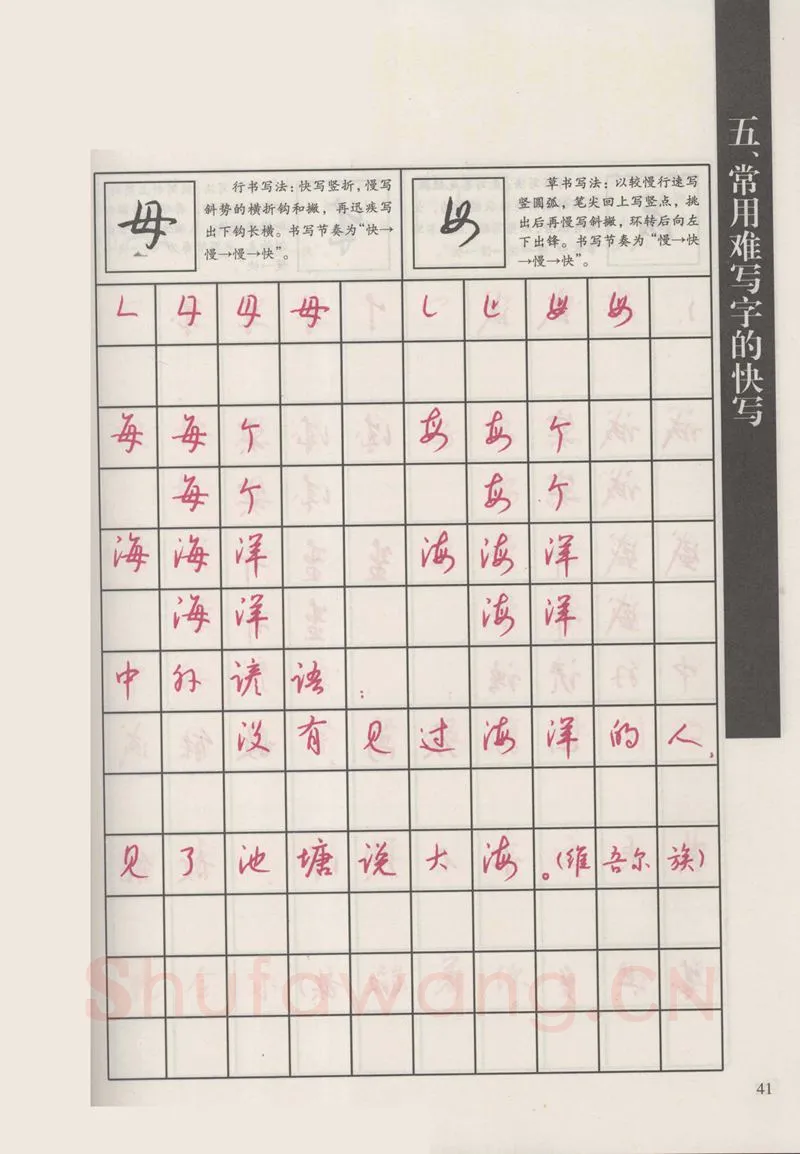 五、常用难写字的快写
母
行书写法：快写竖折，慢写
斜势的横折钩和撇，再迅疾写
出下钩长横。书写节奏为“快→
慢→慢→快”。
母
草书写法：以较慢行速写
竖圆弧，笔尖回上写竖点，挑
出后再慢写斜撇，环转后向左
下出锋。书写节奏为“慢→快
→慢→快”。
母 母
每 每 个 每 每 个
每 个 每 个
海 海 洋 海 海 洋
海 洋 海 洋
中 外 谚 语：
没 有 见 过 海 洋 的 人，
见 了 池 塘 说 大 海。（维 吾 尔 族）
Shufawang.CN
41